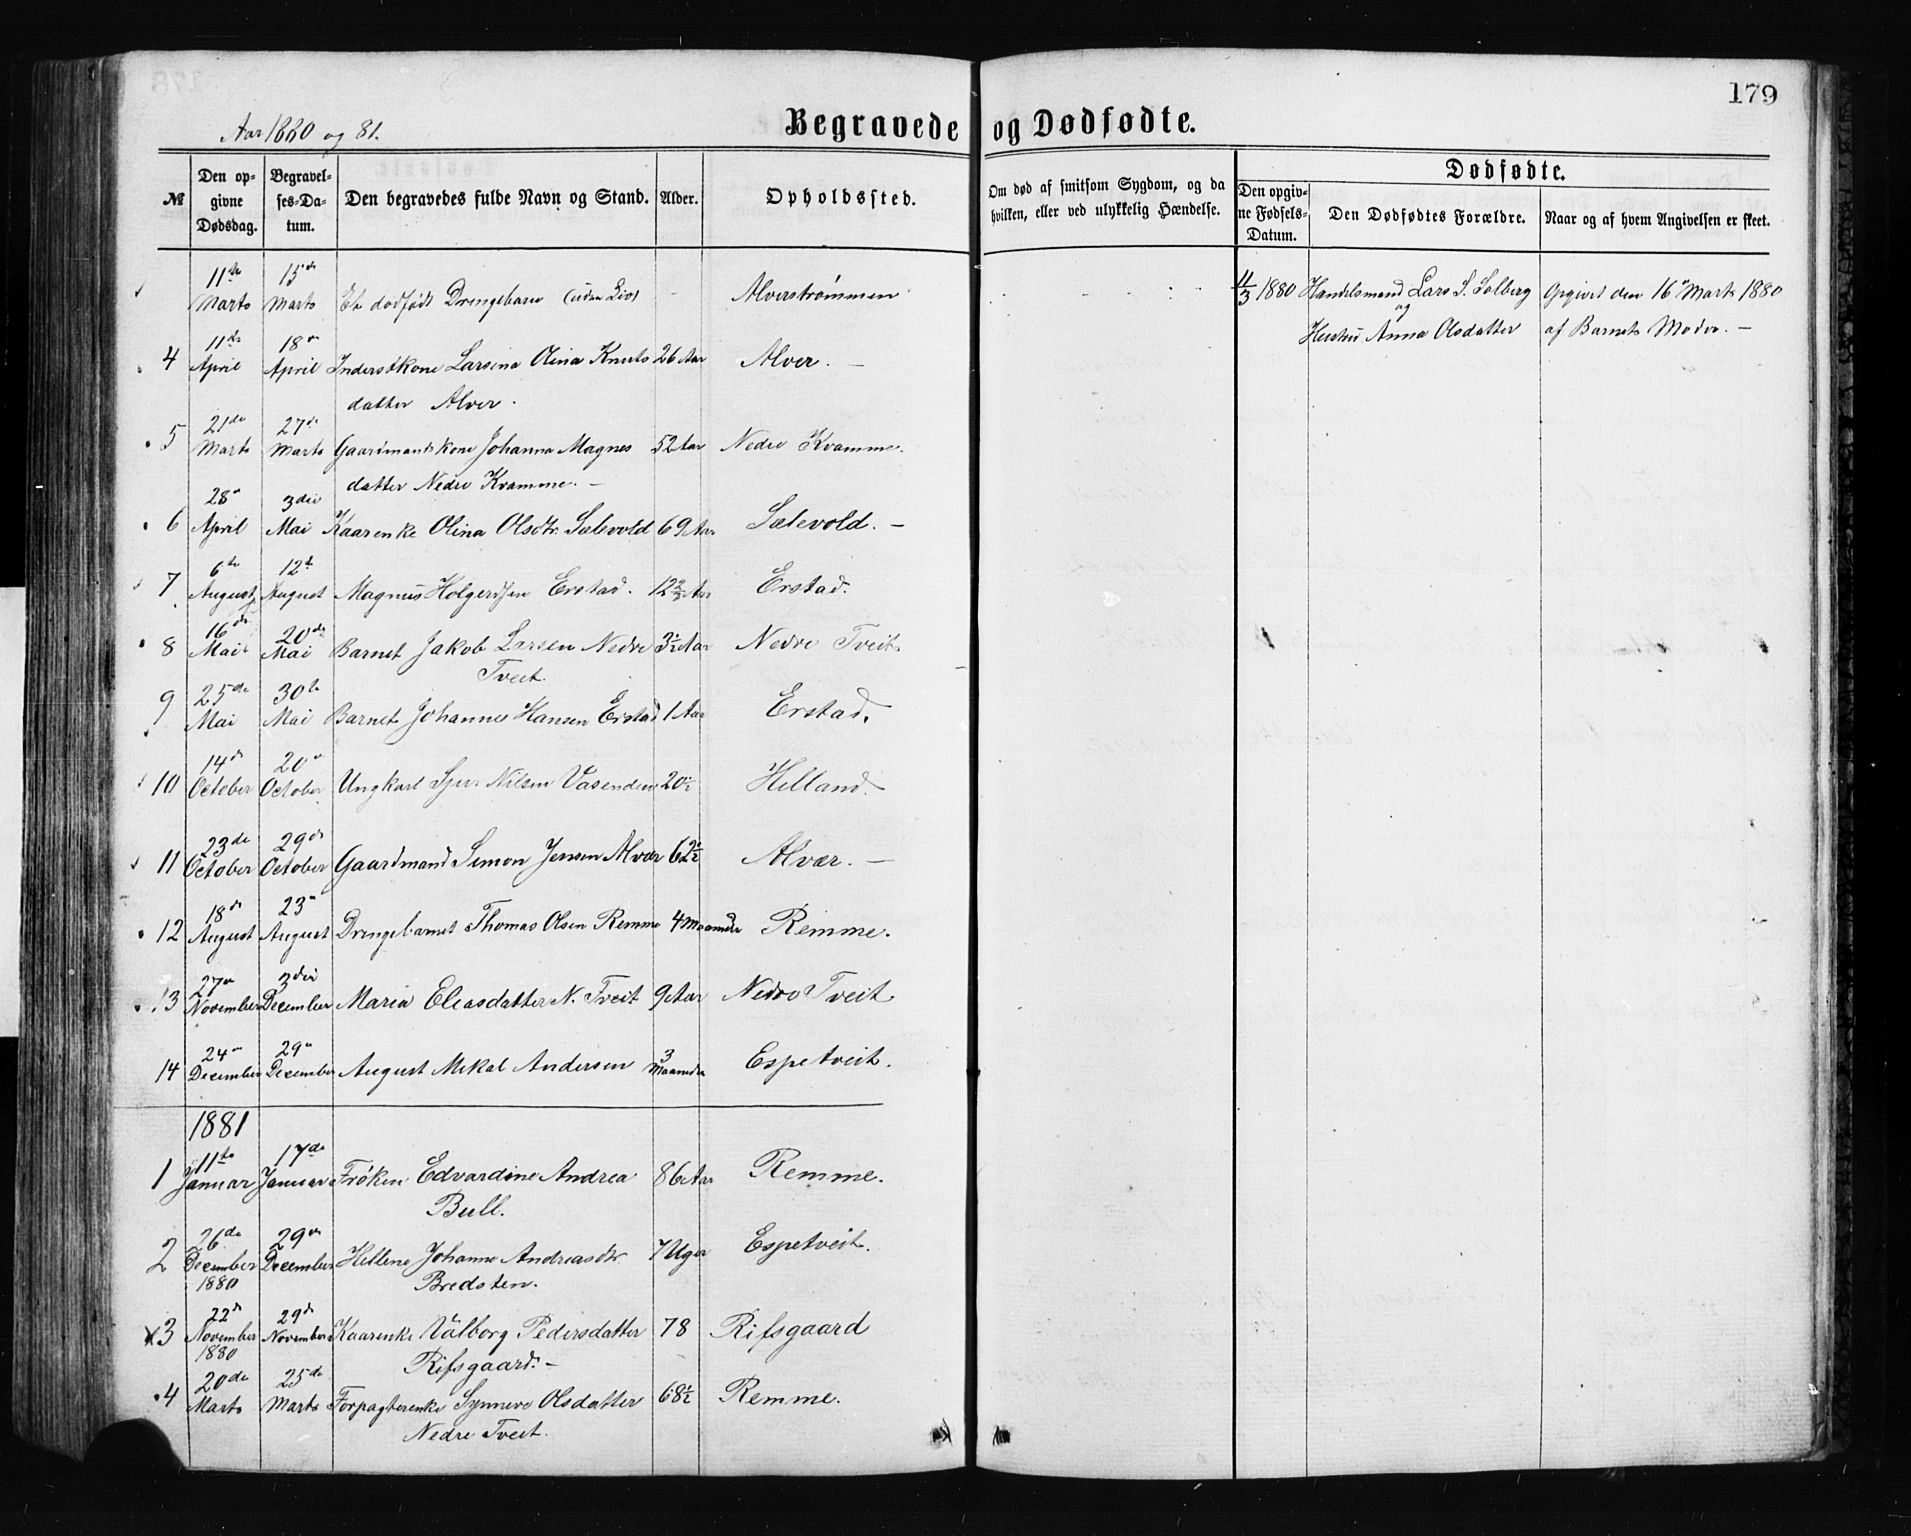 179
Aar 1880 og 81.
Begravede og Dødfødte.
№ Den opgivne Dødsdag. Begravelses-Datum. Den begravedes fulde Navn og Stand. Alder. Opholdssted. Om død af smitsom Sygdom, og da hvilken, eller ved ulykkelig Hændelse. Dødfødte. Den opgivne Fødsels-Datum. Den Dødfødtes Forældre. Naar og af hvem Angivelsen er skeet.
11te Marts 15de Marts Et dødfødt Drengebarn (uden Liv) Alverstrømmen 11/3 1880 Handelsmand Lars S. Solberg Opgivet den 16de Marts 1880
og
Hustru Anna Olsdatter af Barnets Moder. —
4 11te April 18de April Inderstkone Larsina Olina Knuts 26 Aar Alver. —
datter Alver.
5 21de Marts 27de Marts Gaardmandskone Johanna Magnes 52 Aar Nedre Kvamme.
datter Nedre Kvamme. —
6 28de April 3die Mai Kaarenke Olina Olsdtr. Sælevold 69 Aar Sælevold. —
7 6te August 12te August Magnus Holgersen Erstad. 12 2/3 Aar Erstad.
8 16de Mai 20de Mai Barnet Jakob Larsen Nedre 3 1/2 Aar Nedre Tveit
Tveit.
9 25de Mai 30te Mai Barnet Johannes Hansen Erstad 1 Aar Erstad.
10 14de October 20de October Ungkarl Sjur Nilsen Vasenden 20 1/2 Helland.
11 23de October 29de October Gaardmand Simon Jensen Alvær 62 1/2 Alvær. —
12 18de August 23de August Drengebarnet Thomas Olsen Remme 4 Maaneder Remme.
13 27de November 3die December Maria Eliasdatter N. Tveit 9 Aar Nedre Tveit
14 24de December 29de December August Mikal Andersen 3 Maaneder Espetveit.
1881
1 11te Januar 17de Januar Frøken Edvardine Andrea 86 Aar Remme.
Bull.
2 26de December 1880 29de December Hellene Johanne Andreasdtr 7 Uger Espetveit.
Bredsten.
x3 22de November 1880 29de November Kaarenke Valborg Pedersdatter 78 Rifsgaard
Rifsgaard. —
4 20de Marts 25de Marts Forpagterenke Synneve Olsdatter 68 1/2 Remme.
Nedre Tveit.